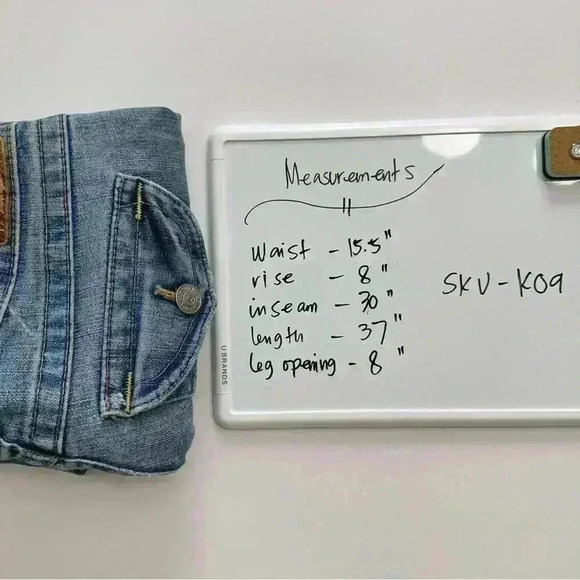 Measurements
waist - 15.5"
rise - 8"
inseam - 30"
length - 37"
leg opening - 8"
SKU - K09
U BRANDS